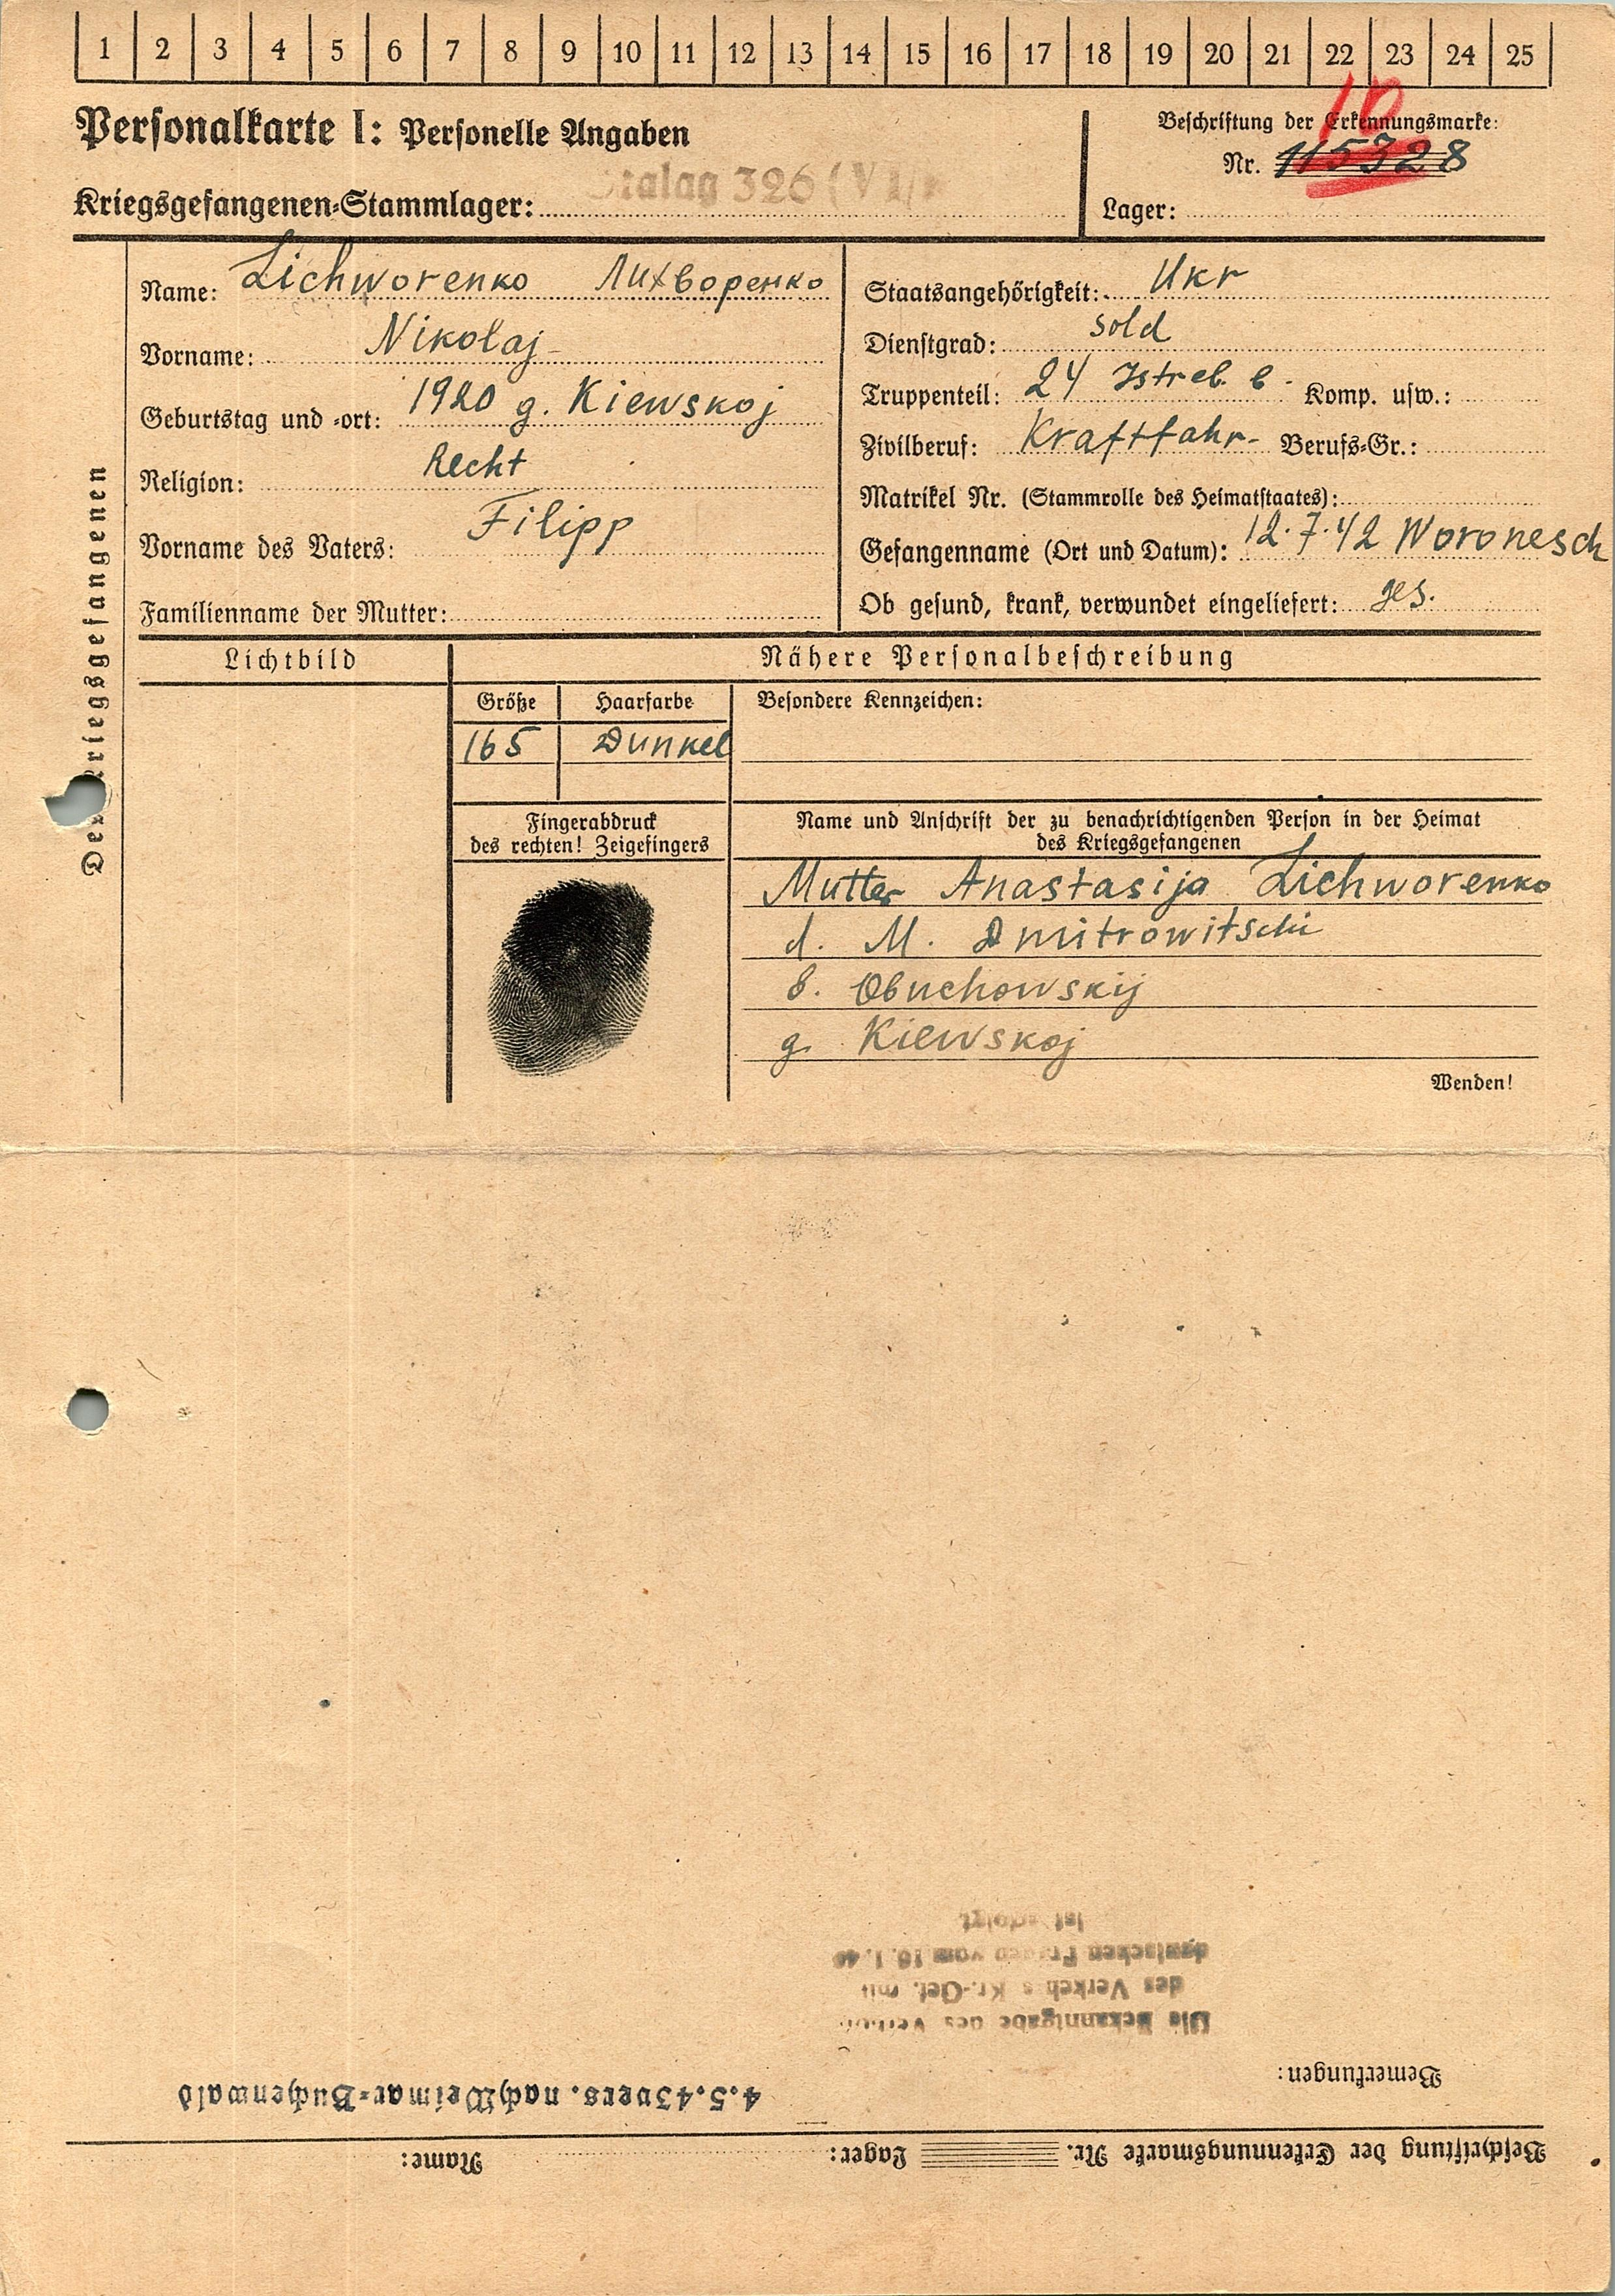 1 2 3 4 5 6 7 8 9 10 11 12 13 14 15 16 17 18 19 20 21 22 23 24 25
Personalkarte I: Personelle Angaben
Beschriftung der Erkennungsmarke:
Nr. 115328
10
Stalag 326 (VI/
Kriegsgefangenen-Stammlager:
Lager:
Des Kriegsgefangenen
Name: Lichworenko Лихворенко
Vorname: Nikolaj
Geburtstag und -ort: 1920 g. Kiewskoj
Religion: Recht
Vorname des Vaters: Filipp
Familienname der Mutter:
Staatsangehörigkeit: Ukr
Dienstgrad: sold
Truppenteil: 24 Istreb. b. Komp. usw.:
Zivilberuf: Kraftfahr- Berufs-Gr.:
Matrikel Nr. (Stammrolle des Heimatstaates):
Gefangenname (Ort und Datum): 12.7.42 Woronesch
Ob gesund, krank, verwundet eingeliefert: ges.
Lichtbild
Nähere Personalbeschreibung
Größe Haarfarbe Besondere Kennzeichen:
165 Dunkel
Fingerabdruck
des rechten! Zeigefingers
Name und Anschrift der zu benachrichtigenden Person in der Heimat
des Kriegsgefangenen
Mutter Anastasija Lichworenko
d. M. Dmitrowitschi
b. Obuchowskij
g. Kiewskoj
Wenden!
Beschriftung der Erkennungsmarke Nr. Lager: Name:
Bemerkungen:
4.5.43 vers. nach Weimar-Buchenwald
Die Bekanntgabe des Verbots
des Verkehrs Kr.-Gef. mit
deutschen Frauen vom 16.1.40
ist erfolgt